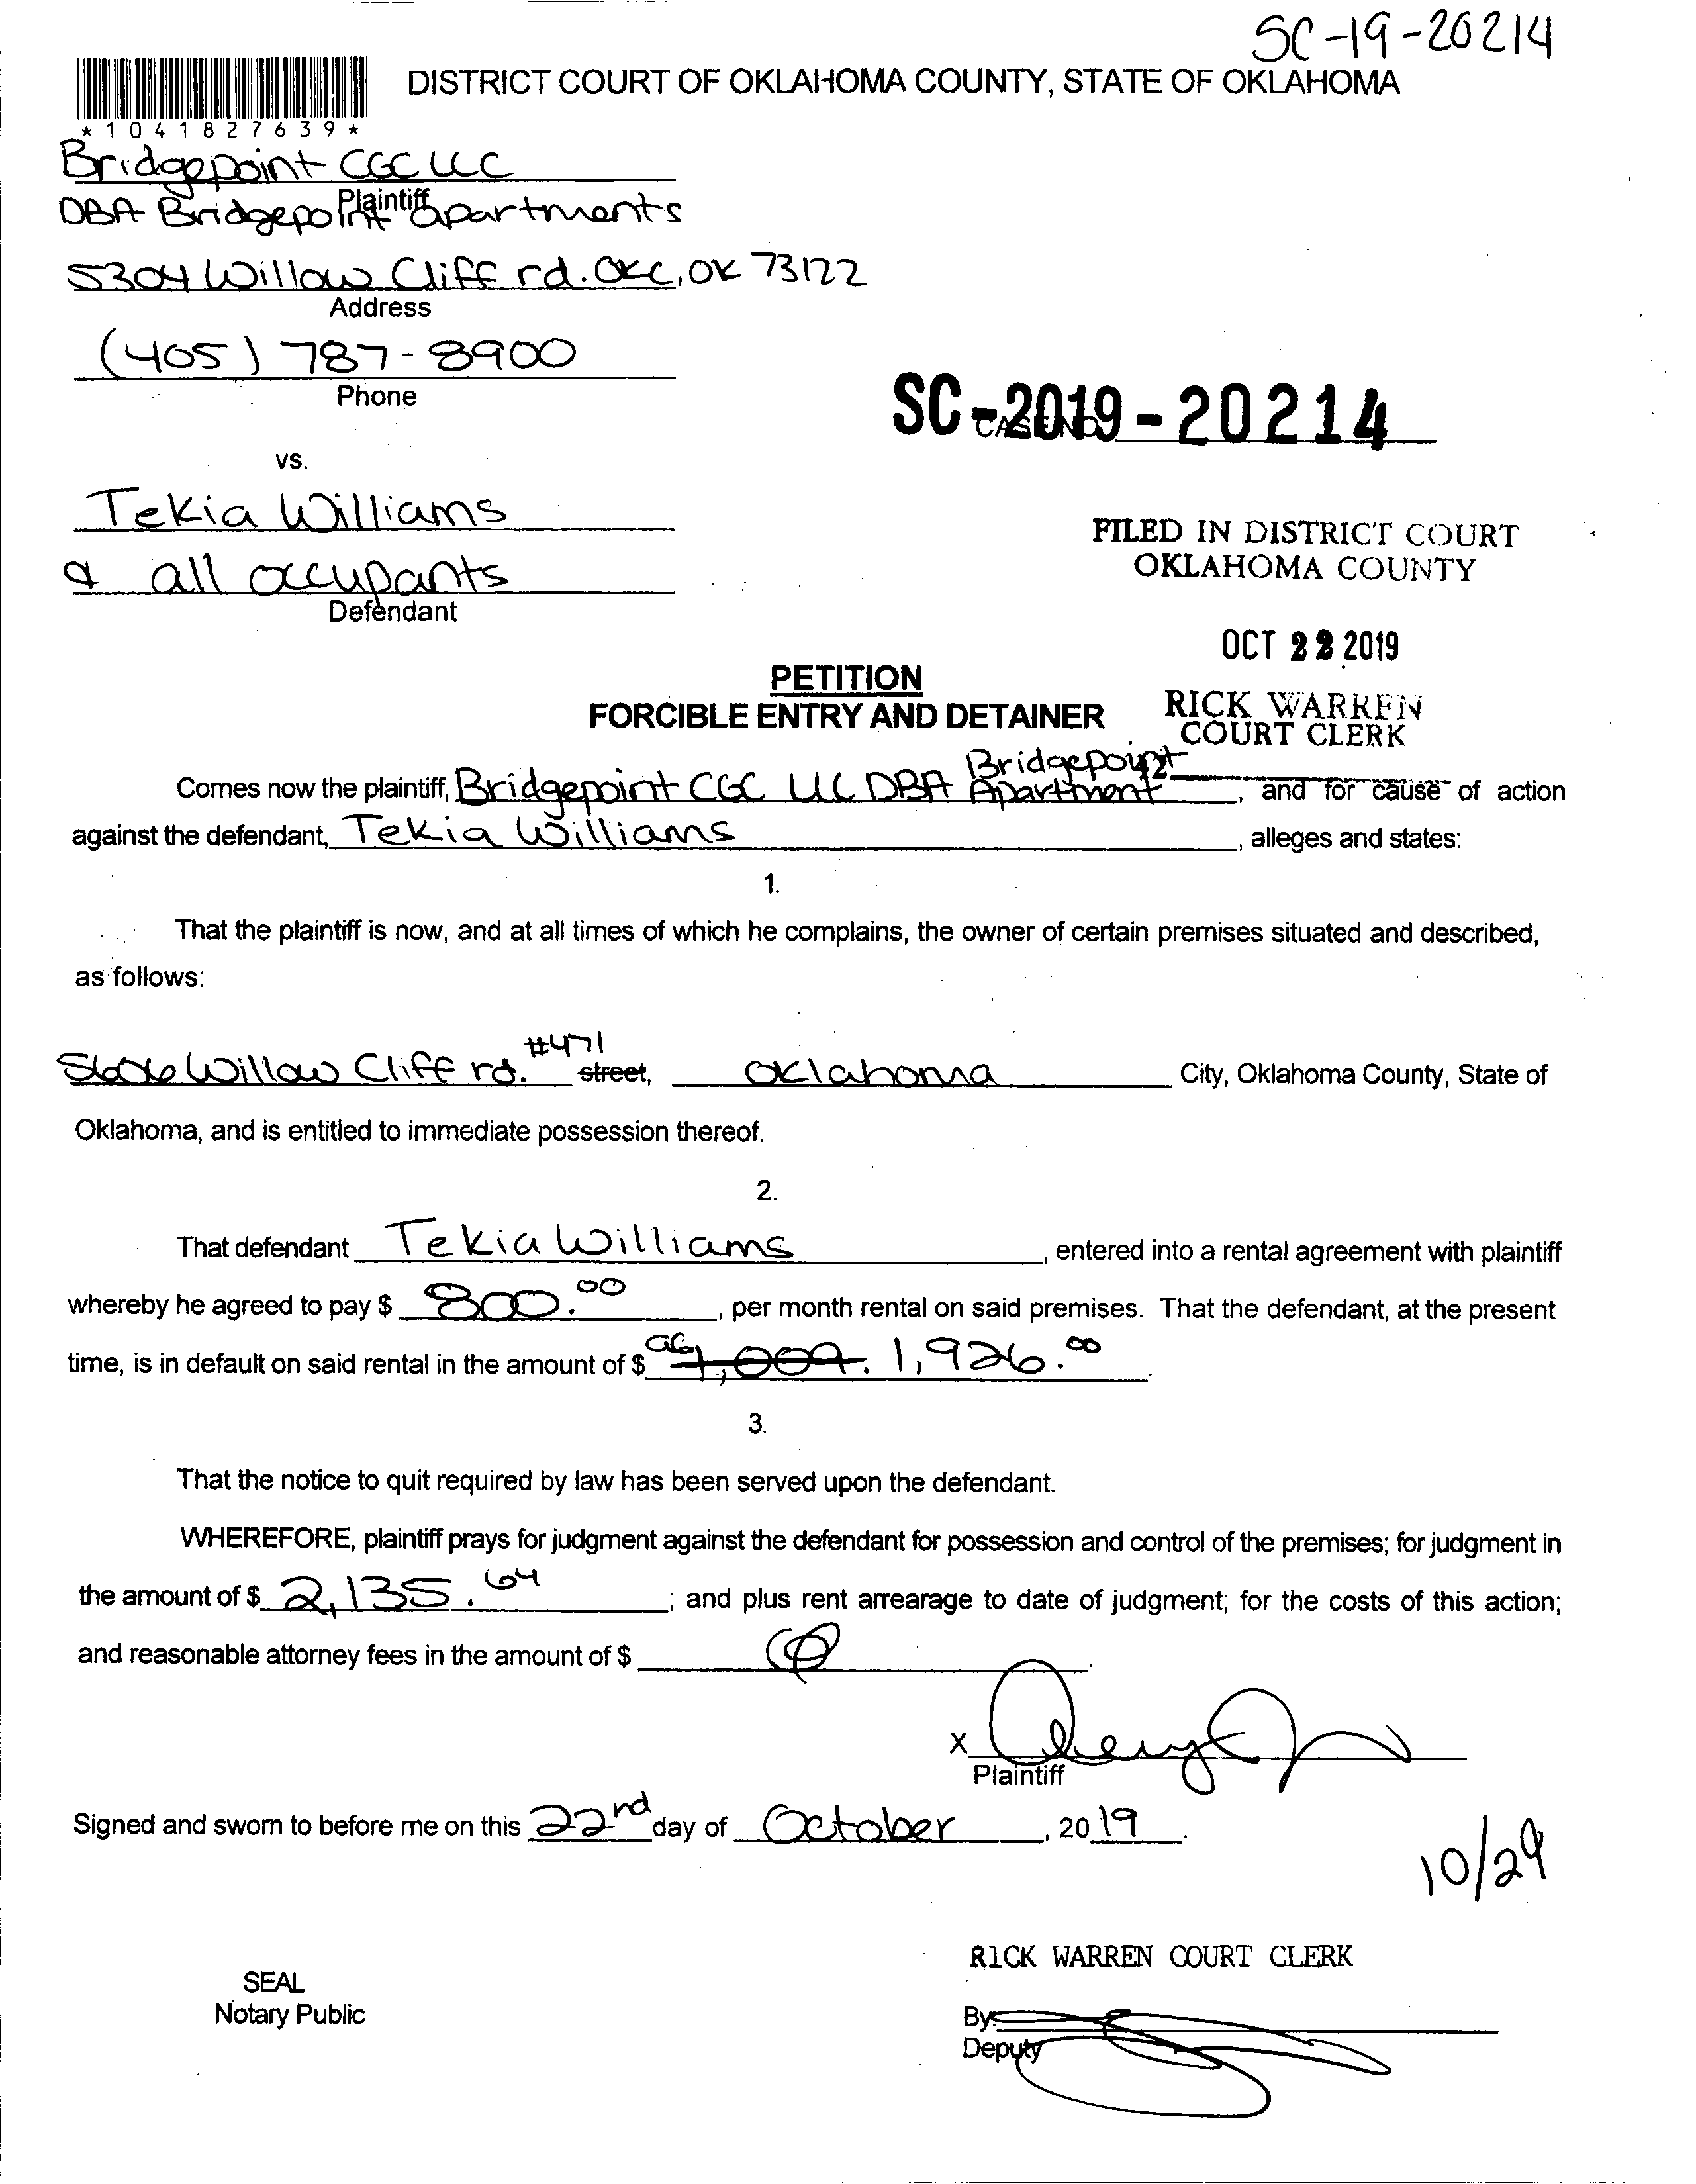 SC-19-20214
DISTRICT COURT OF OKLAHOMA COUNTY, STATE OF OKLAHOMA
*1041827639*
Bridgepoint CGC LLC
Plaintiff
DBA Bridgepoint Apartments
5304 Willow Cliff rd. OKC, OK 73122
Address
(405) 787-8900
Phone
SC-2019-20214
CASE NO.
vs.
Tekia Williams
& all occupants
Defendant
FILED IN DISTRICT COURT
OKLAHOMA COUNTY
OCT 22 2019
RICK WARREN
COURT CLERK
42
PETITION
FORCIBLE ENTRY AND DETAINER
Comes now the plaintiff, Bridgepoint CGC LLC DBA Bridgepoint Apartment, and for cause of action
against the defendant, Tekia Williams, alleges and states:
1.
That the plaintiff is now, and at all times of which he complains, the owner of certain premises situated and described,
as follows:
5606 Willow Cliff rd. #471 street, Oklahoma City, Oklahoma County, State of
Oklahoma, and is entitled to immediate possession thereof.
2.
That defendant Tekia Williams, entered into a rental agreement with plaintiff
whereby he agreed to pay $ 800.00, per month rental on said premises. That the defendant, at the present
time, is in default on said rental in the amount of $ 1,009. 1,926.00.
3.
That the notice to quit required by law has been served upon the defendant.
WHEREFORE, plaintiff prays for judgment against the defendant for possession and control of the premises; for judgment in
the amount of $ 2,135.64; and plus rent arrearage to date of judgment; for the costs of this action;
and reasonable attorney fees in the amount of $
X
Plaintiff
Signed and sworn to before me on this 22nd day of October, 2019.
10/29
RICK WARREN COURT CLERK
SEAL
Notary Public
By:
Deputy